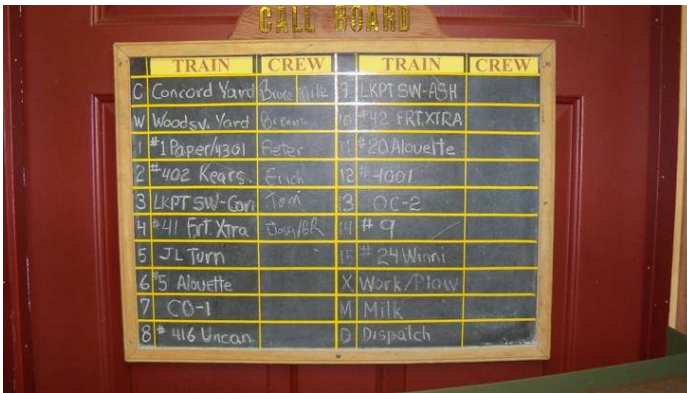 CALL BOARD
TRAIN CREW TRAIN CREW
C Concord Yard Bruce Mike 9 LKPT SW-ASH
W Woodsv. Yard 10 #42 FRT XTRA
1 #1 Paper/4301 Peter 11 #20 Alouette
2 #402 Kears. Erich 12 #4001
3 LKPT SW-Con Tom 13 OC-2
4 #41 Frt Xtra Doug/ 14 #9
5 JL Turn 15 #24 Winni
6 #5 Alouette X Work/Plow
7 CO-1 M Milk
8 #416 Uncan. D Dispatch